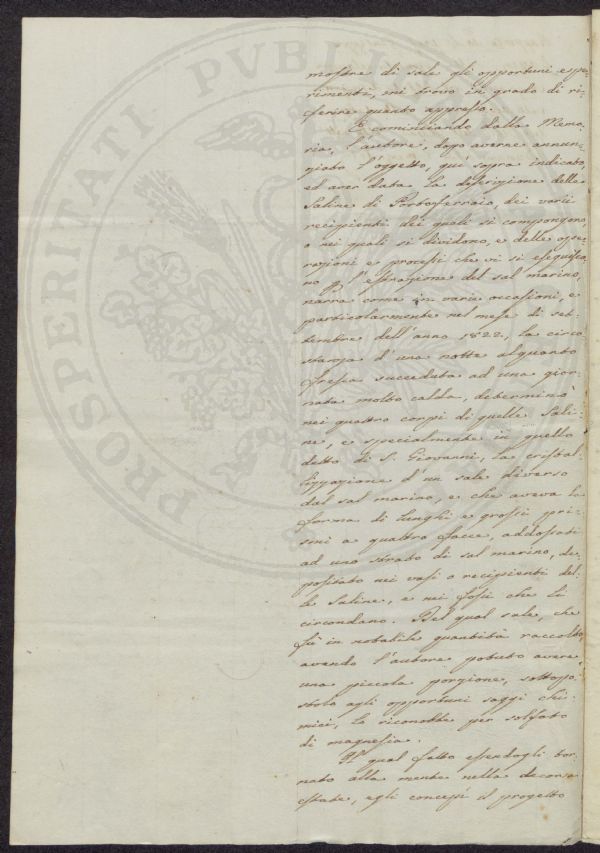 PROSPERITATI PVBLICAE
mostre di sale gli opportuni espe-
rimenti, mi trovo in grado di ri-
ferire quanto appresso.
E cominciando dalla Memo-
ria, l'autore, dopo averne annun-
ziato l'oggetto, quì sopra indicato,
ed aver data la descrizione delle
Saline di Portoferraio, dei varii
recipienti dei quali si compongono,
o nei quali si dividono, e delle ope-
razioni e processi che vi si eseguisco-
no p l'estrazione del sal marino,
narra come in varie occasioni, e
particolarmente nel mese di set-
tembre dell'anno 1822, la circo-
stanza d'una notte alquanto
fresca succeduta ad una gior-
nata molto calda, determinò
nei quattro corpi di quelle Sali-
ne, e specialmente in quello
detto di S. Giovanni, la cristal-
lizzazione d'un sale diverso
dal sal marino, e che aveva la
forma di lunghi e grossi pri-
smi a quattro facce, addossati
ad uno strato di sal marino, de-
positato nei vasi o recipienti del-
le Saline, e nei fossi che le
circondano. Del qual sale, che
fù in notabile quantità raccolto,
avendo l'autore potuto avere
una piccola porzione, sottopo-
stola agli opportuni saggi chi-
mici, la riconobbe per solfato
di magnesia.
Il qual fatto essendogli tor-
nato alla mente nella decorsa
estate, egli concepì il progetto